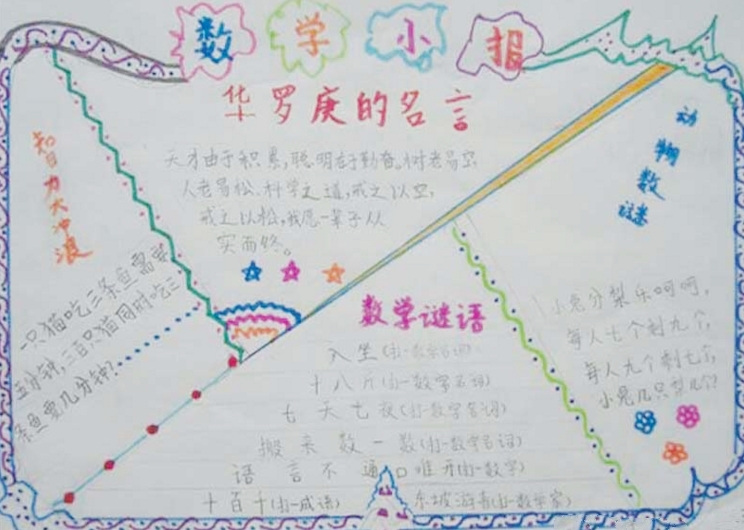 数学小报
华罗庚的名言
天才由于积累,聪明在于勤奋。树老易空
人老易松,科学之道,戒之以空,
戒之以松,我愿一辈子从
实而终。
智力大冲浪
一只猫吃三条鱼需要
五分钟,三百只猫同时吃三
条鱼要几分钟?
数学谜语
入坐(打一数学名词)
十八斤(打一数学名词)
七天七夜(打一数学名词)
搬来数一数(打一数学名词)
语言不通口难开(打一数学)
十百千(打一成语)
东坡游青(打一数学家)
动物数谜
小兔分梨乐呵呵,
每人七个剩九个,
每人九个剩七个,
小兔几只梨几个?